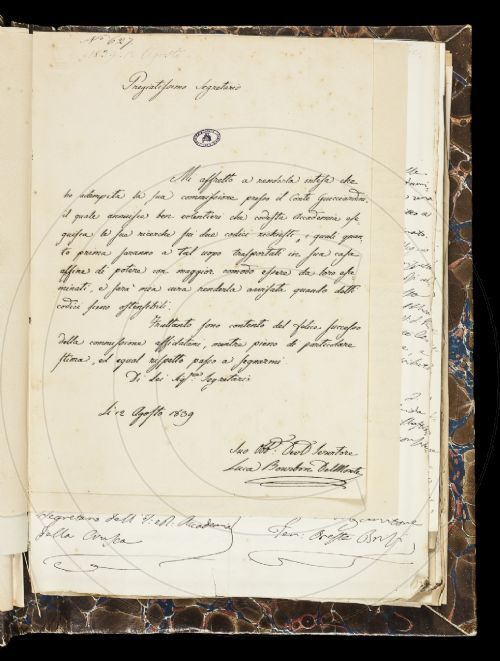 N.° 627
Pregiatissimo Segretario
Mi affretto a renderla intesa che
ho adempita la sua commissione presso il Conte Guicciardini
il quale annuisce ben volentieri che codesta Accademia ese
guisca le sue ricerche sui due codici richiesti, i quali quan
to prima saranno a tal uopo trasportati in sua casa
affine di potere con maggior comodo essere da loro esa
minati, e sarà mia cura renderla avvisata quando detti
codici sieno ostensibili.
Frattanto sono contento del felice successo
della commissione affidatami, mentre pieno di particolare
stima, ed egual rispetto passo a segnarmi
Di Lei Sig.re Segretario
Li 12 Agosto 1839
Suo Dev.° Servitore
Luca Bourbon DelMonte
Segretario dell' I. e R. Accademia
della Crusca
Oreste